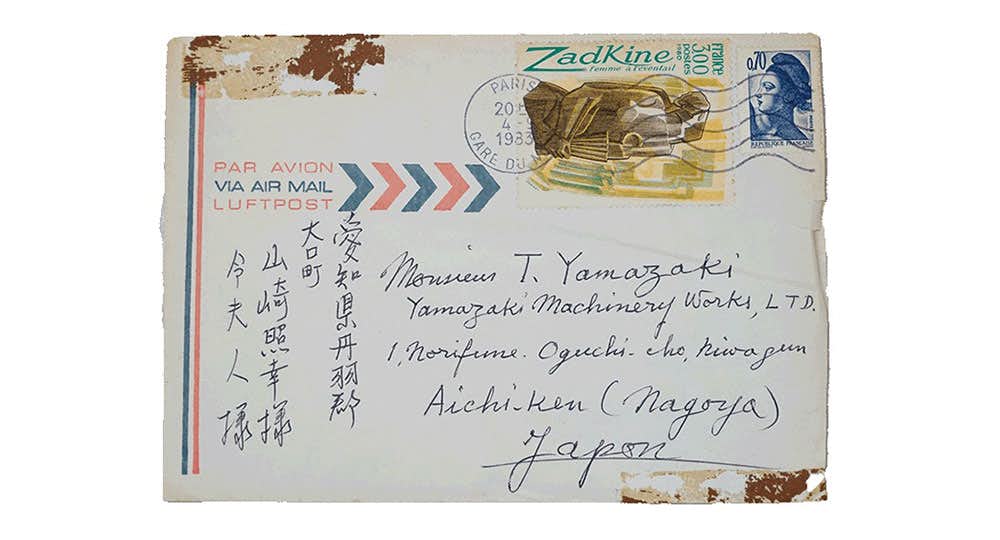 ZadKine
femme à l'éventail
1980
france
postes
3,00
0,70
REPUBLIQUE FRANÇAISE
PARIS
20
4 -
1983
GARE DU
PAR AVION
VIA AIR MAIL
LUFTPOST
愛知県丹羽郡
大口町
山崎照幸様
令夫人様
Monsieur T. Yamazaki
Yamazaki Machinery Works, LTD.
1, Norifune. Oguchi-cho, Niwagun
Aichi-Ken (Nagoya)
Japon